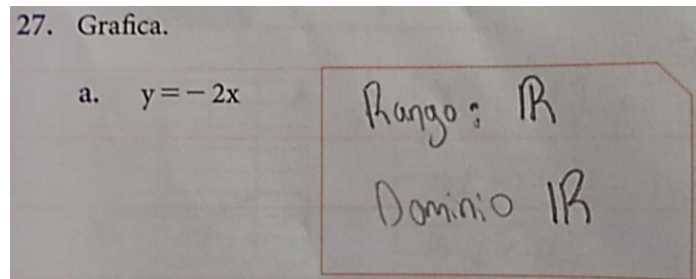 27. Grafica.
a. y = - 2x
Rango: ℝ
Dominio ℝ